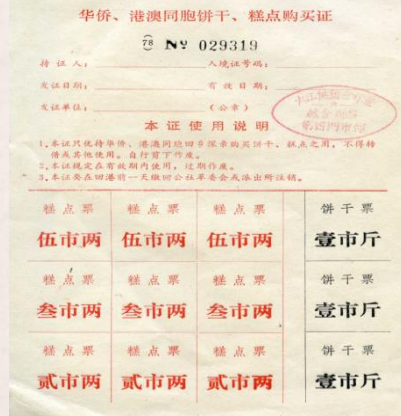 华侨、港澳同胞饼干、糕点购买证
(78) Nº 029319
持证人： 入境证号码：
发证日期： 有效日期：
发证单位： （公章）
本证使用说明
1、本证只优待华侨、港澳同胞回乡探亲购买饼干、糕点之用，不得转
借或其他使用。自行剪下作废。
2、本证规定在有效期内使用，过期作废。
3、本证要在回港前一天缴回公社革委会或派出所注销。
糕点票 糕点票 糕点票 饼干票
伍市两 伍市两 伍市两 壹市斤
糕点票 糕点票 糕点票 饼干票
叁市两 叁市两 叁市两 壹市斤
糕点票 糕点票 糕点票 饼干票
贰市两 贰市两 贰市两 壹市斤